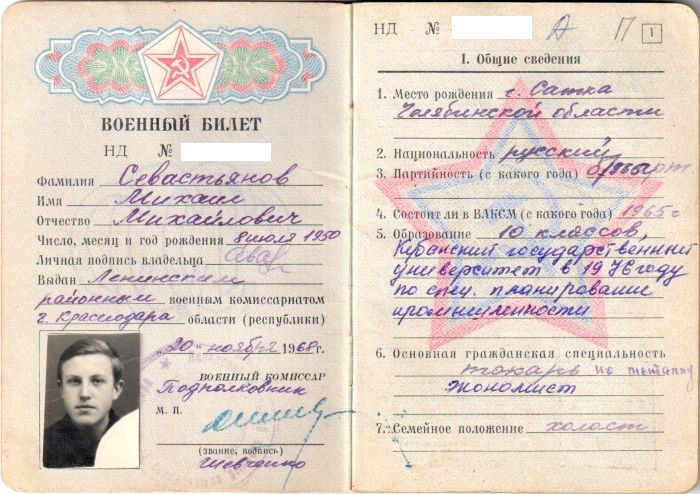 ВОЕННЫЙ БИЛЕТ
НД №
Фамилия Севастьянов
Имя Михаил
Отчество Михайлович
Число, месяц и год рождения 8 июля 1950
Личная подпись владельца
Выдан Ленинским
районным военным комиссариатом
г. Краснодара области (республики)
„20“ ноября 1968 г.
ВОЕННЫЙ КОМИССАР
Подполковник
М. П.
(звание, подпись)
Шевченко
НД № А П 1
I. Общие сведения
1. Место рождения г. Сатка
Челябинской области
2. Национальность русский
3. Партийность (с какого года) б/парт.
4. Состоит ли в ВЛКСМ (с какого года) 1965 г
5. Образование 10 классов,
Кубанский государственный
университет в 1976 году
по спец. планирование
промышленности
6. Основная гражданская специальность
токарь по металлу
экономист
7. Семейное положение холост